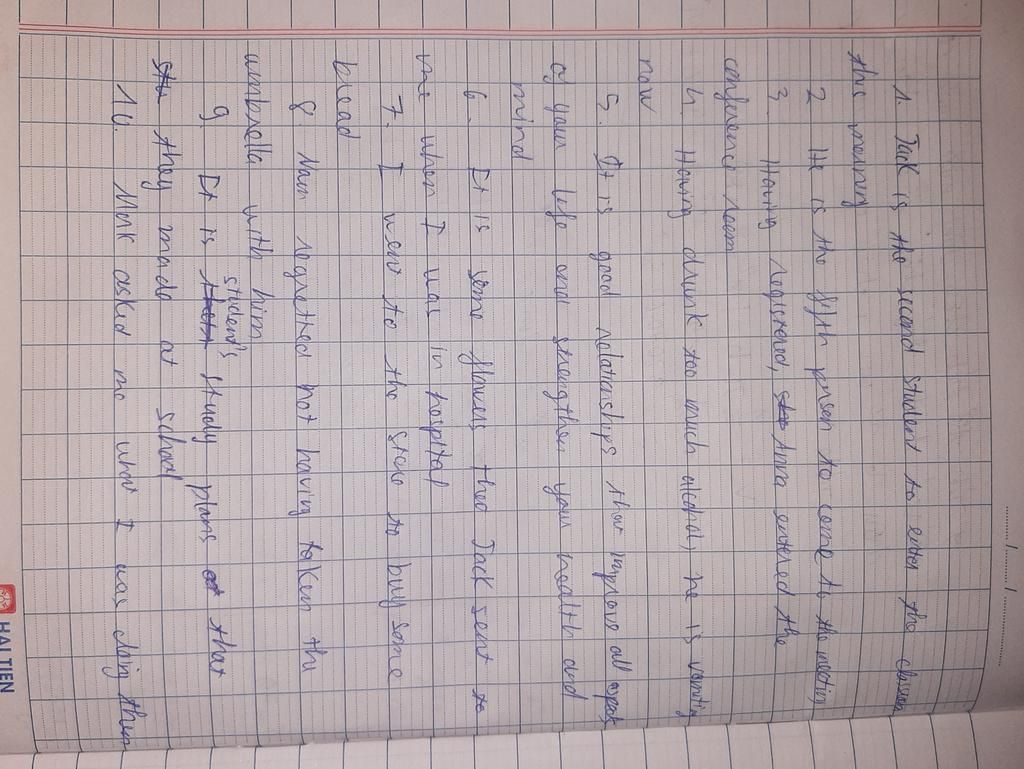 1. Jack is the second student to enter the classroom
the morning
2 He is the fifth person to come to the meeting
3. Having registered, Anna entered the
conference room
4. Having drunk too much alcohol, he is vomiting
now
5. It is good relationships that improve all aspects
of your life and strengthen your health and
mind
6. It is some flowers that Jack sent to
me when I was in hospital
7. I went to the store to buy some
bread
8. Nam regretted not having taken the
umbrella with him
9. It is student's study plans that
they made at school
10. Monk asked me what I was doing then
HAI TIEN